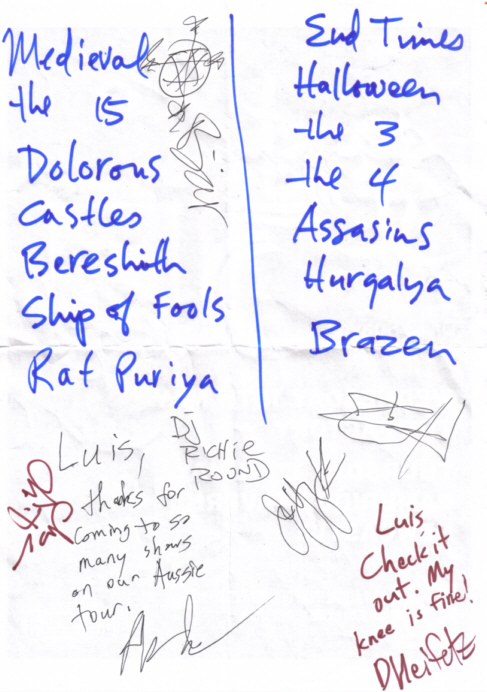 Medieval
the 15
Dolorous
Castles
Bereshith
Ship of Fools
Rat Puriya
End Times
Halloween
the 3
the 4
Assasins
Hurqalya
Brazen
Luis,
thanks for
coming to so
many shows
on our Aussie
tour.
DJ
RICHIE
ROUND
Luis
Check it
out. My
knee is fine!
DHeifetz